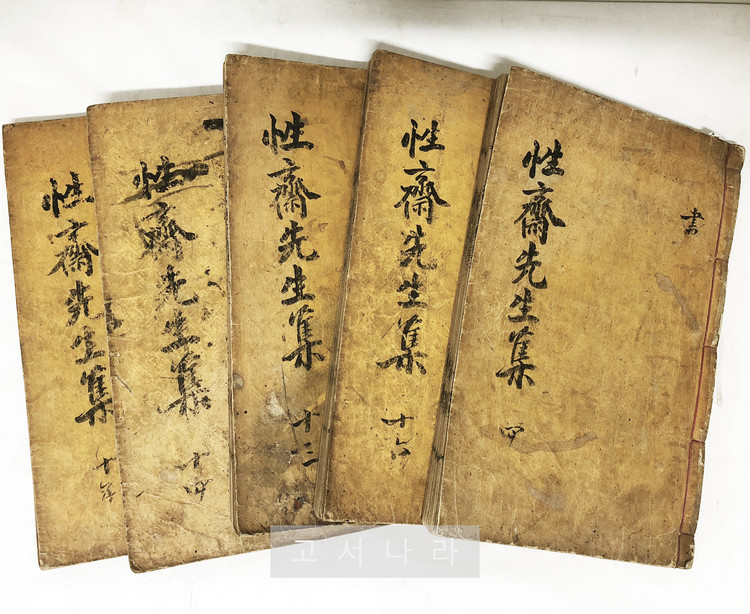 書
性齋先生集
四
性齋先生集
十六
性齋先生集
十三
性齋先生集
十四
性齋先生集
十
고서나라